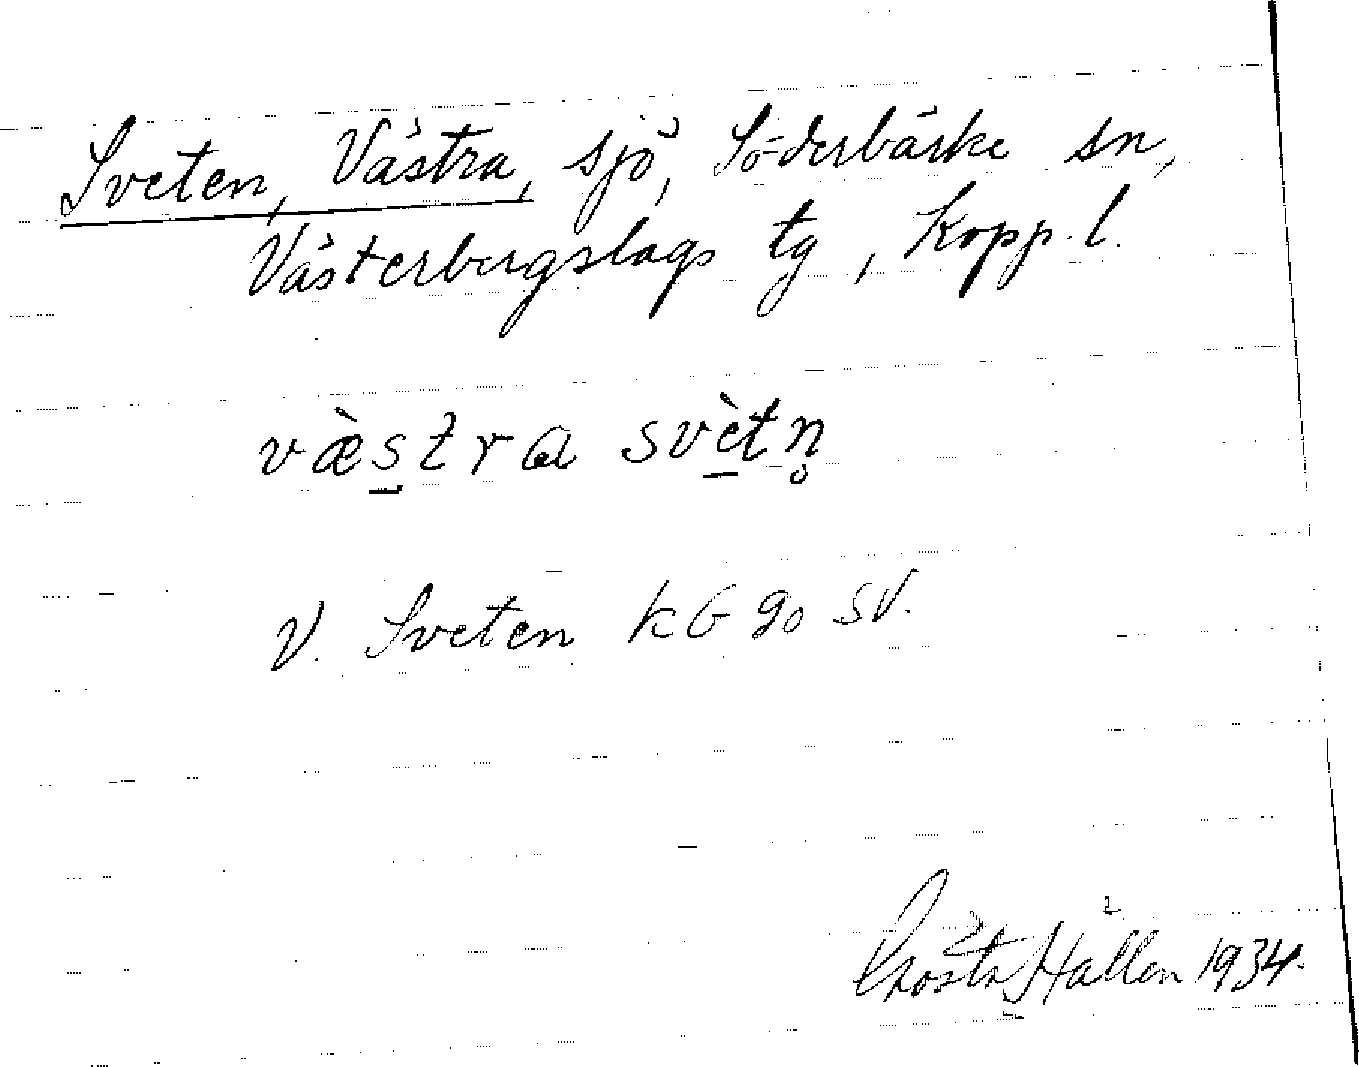 Sveten, Västra, sjö, Söderbärke sn,
Västerbergslags tg, Kopp. l.
væ̀s̲tra svèt̲n̥
V. Sveten kG 90 SV.
Gösta Hallen 1934.